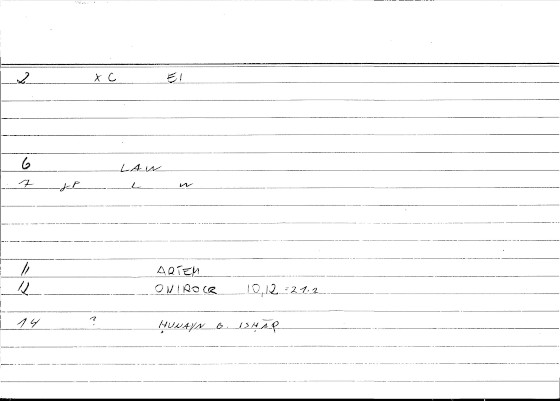 2 x C EI
6 LAW
7 L W
11 ARTEM
12 ONIROCR 10,12 = 21.2
14 ? ḤUNAYN B. ISḤĀQ